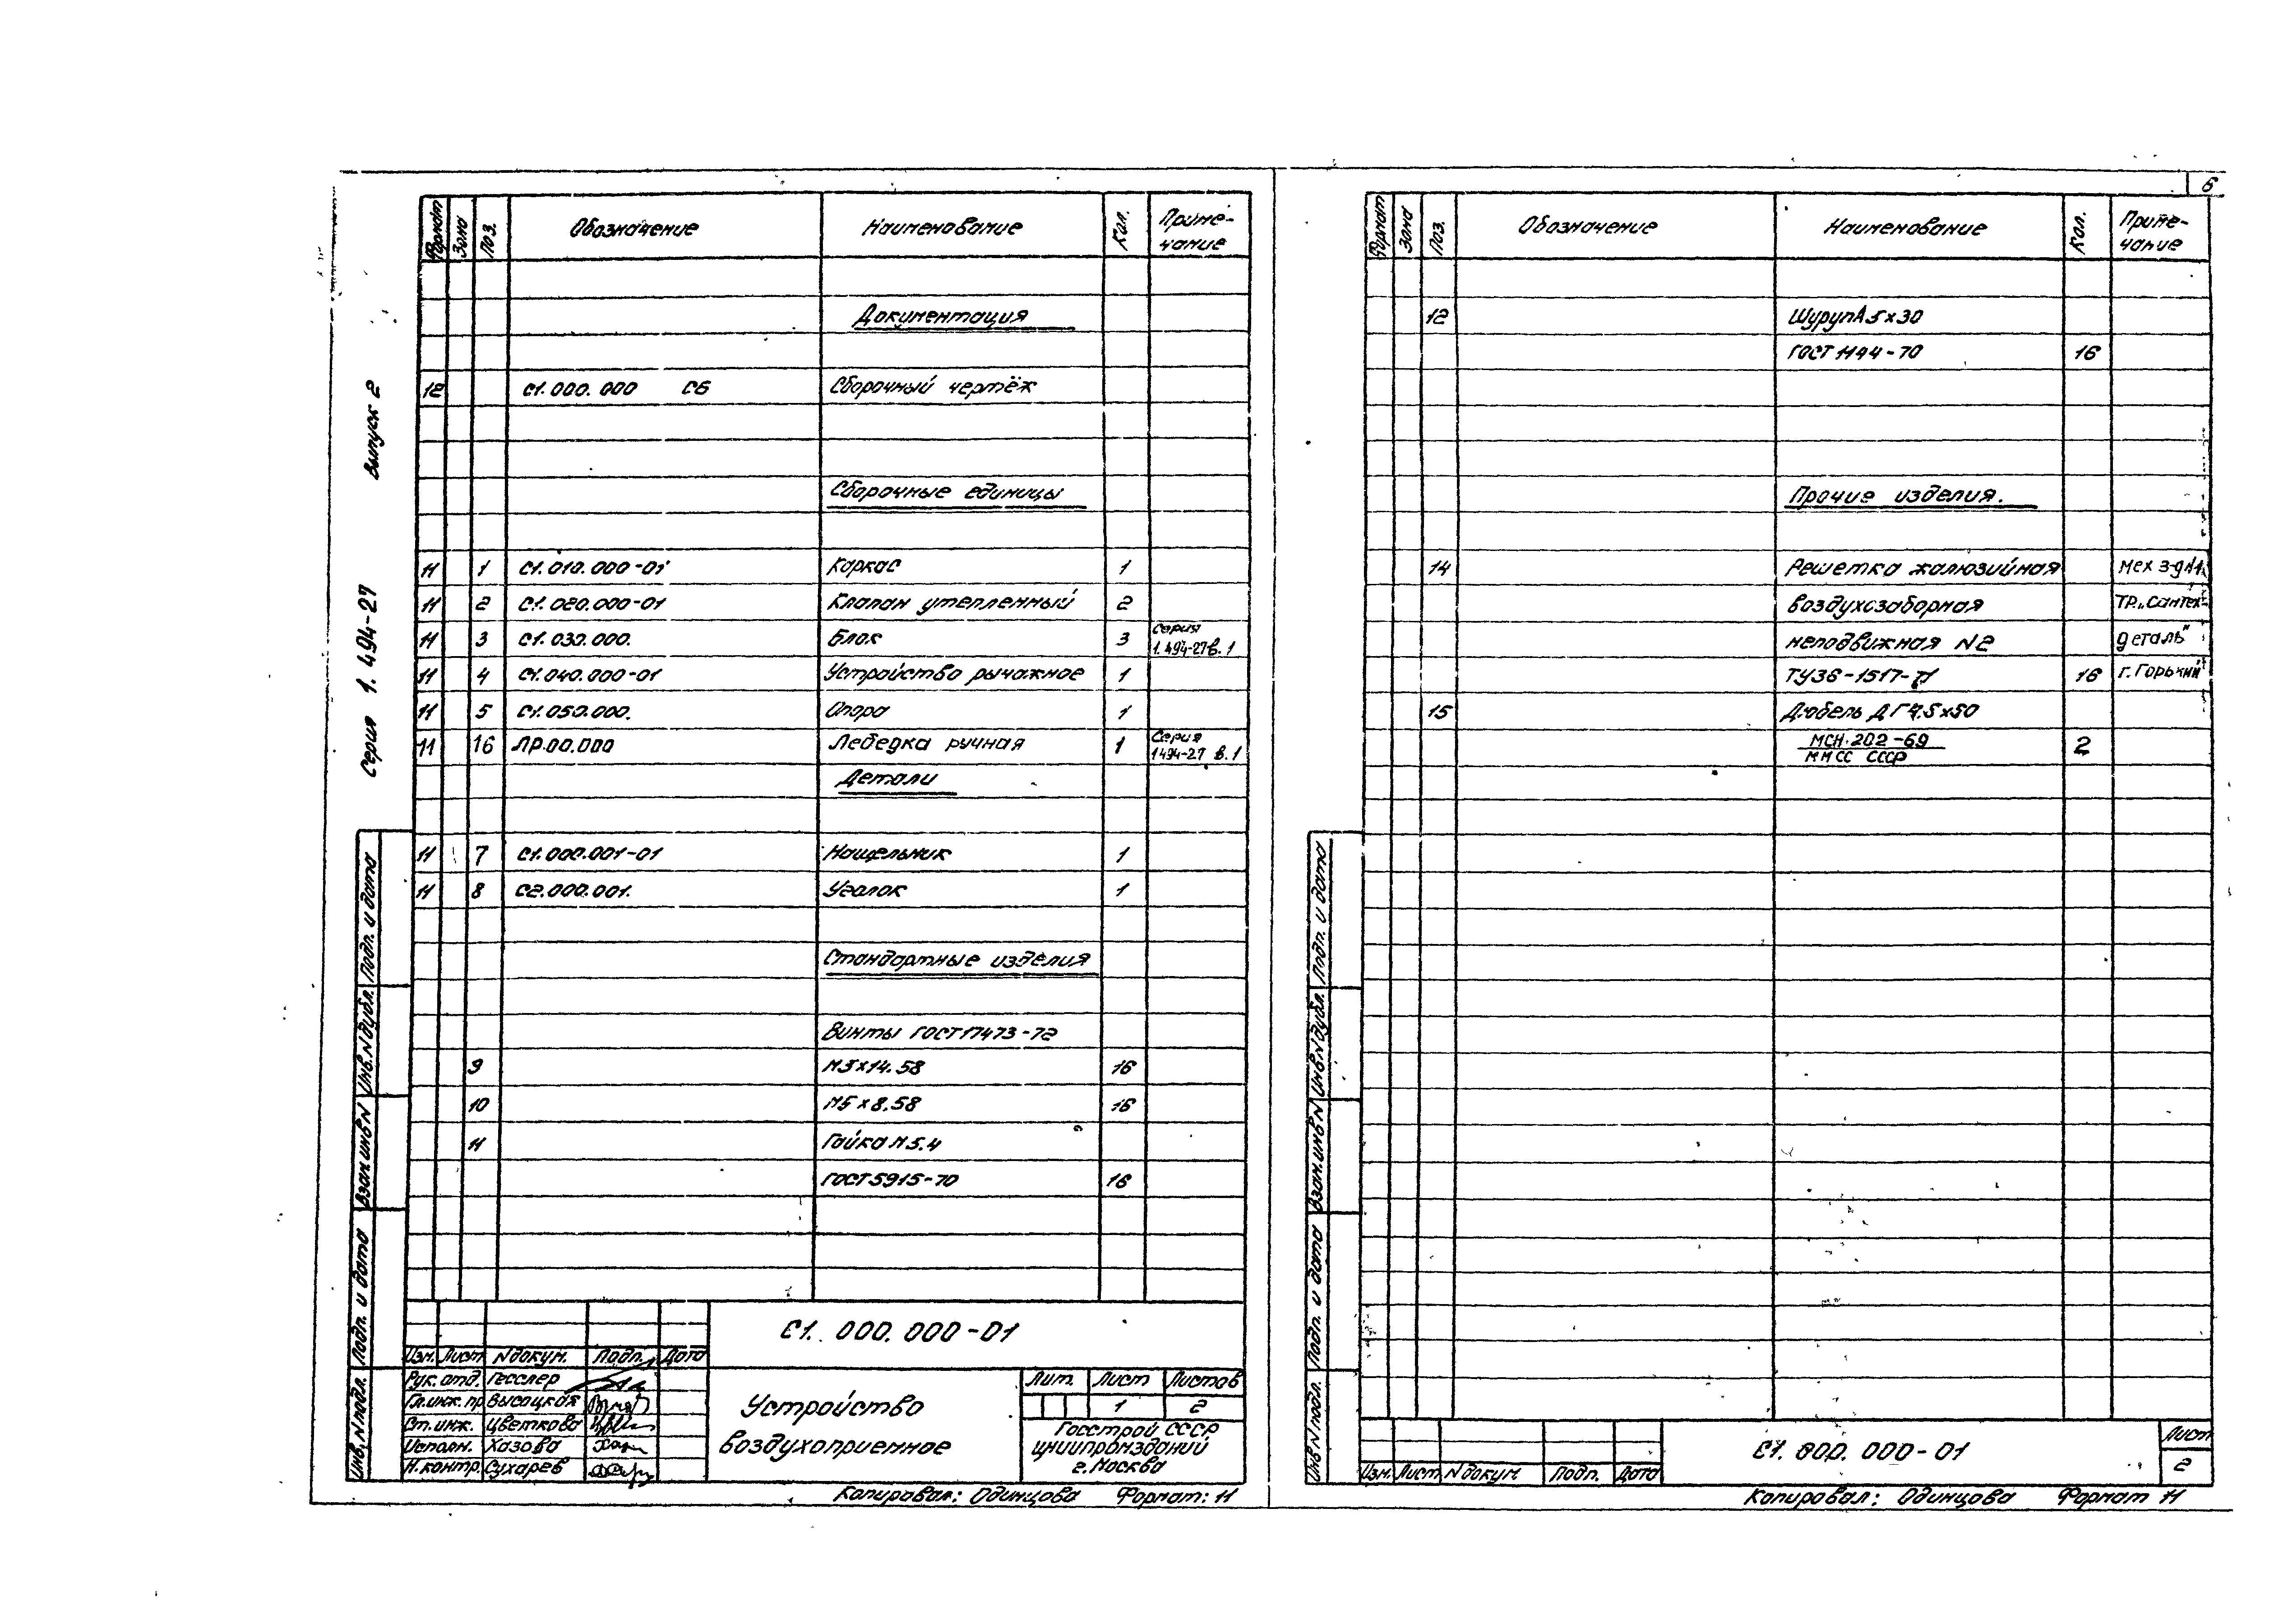 6
Серия 1.494-27 Выпуск 2
Формат Зона Поз. Обозначение Наименование Кол. Приме-
чание
Документация
12 С1.000.000 СБ Сборочный чертёж
Сборочные единицы
11 1 С1.010.000-01 Каркас 1
11 2 С1.020.000-01 Клапан утепленный 2
11 3 С1.030.000. Блок 3 Серия
1.494-27в.1
11 4 С1.040.000-01 Устройство рычажное 1
11 5 С1.050.000. Опора 1
11 16 ЛР.00.000 Лебедка ручная 1 Серия
1494-27 в.1
Детали
11 7 С1.000.001-01 Нащельник 1
11 8 С2.000.001. Уголок 1
Стандартные изделия
Винты ГОСТ17473-72
9 М5х14.58 16
10 М5х8.58 16
11 Гайка М5.4
ГОСТ5915-70 16
Инв.N подл. Подп. и дата Взам инв N Инв.N дубл. Подп. и дата
С1.000.000-01
Изм. Лист N докум. Подп. Дата
Рук. отд. Гесслер
Гл.инж.пр Высоцкая
Ст.инж. Цветкова
Исполн. Хазова
Н.контр. Сухарев
Устройство
воздухоприемное
Лит. Лист Листов
1 2
Госстрой СССР
ЦНИИпромзданий
г.Москва
Копировал: Одинцова Формат: 11
Формат Зона Поз. Обозначение Наименование Кол. Приме-
чание
12 Шуруп А5х30
ГОСТ 1144-70 16
Прочие изделия.
14 Решетка жалюзийная Мех з-д N1
воздухозаборная ТР. „Сантех-
неподвижная N2 деталь"
ТУ36-1517-71 16 г. Горький
15 Дюбель ДГ4.5х50
МСН·202-69 2
ММСС СССР
Инв N подл. Подп. и дата Взам.инв N Инв N дубл. Подп. и дата
С1.000.000-01
Лист
2
Изм. Лист N докум Подп. Дата
Копировал: Одинцова Формат 11